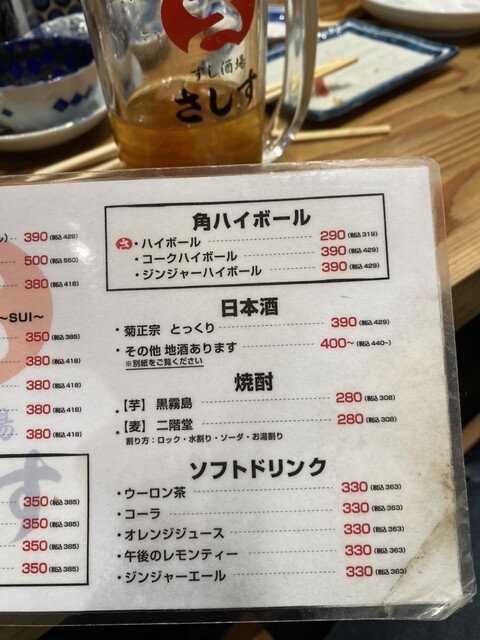 すし酒場
さしす
390(税込429)
500(税込550)
380(税込418)
〜SUI〜
350(税込385)
380(税込418)
380(税込418)
380(税込418)
350(税込385)
350(税込385)
350(税込385)
350(税込385)
角ハイボール
・ハイボール 290(税込319)
・コークハイボール 390(税込429)
・ジンジャーハイボール 390(税込429)
日本酒
・菊正宗 とっくり 390(税込429)
・その他 地酒あります 400〜(税込440〜)
※別紙をご覧ください
焼酎
・【芋】 黒霧島 280(税込308)
・【麦】 二階堂 280(税込308)
割り方：ロック・水割り・ソーダ・お湯割り
ソフトドリンク
・ウーロン茶 330(税込363)
・コーラ 330(税込363)
・オレンジジュース 330(税込363)
・午後のレモンティー 330(税込363)
・ジンジャーエール 330(税込363)